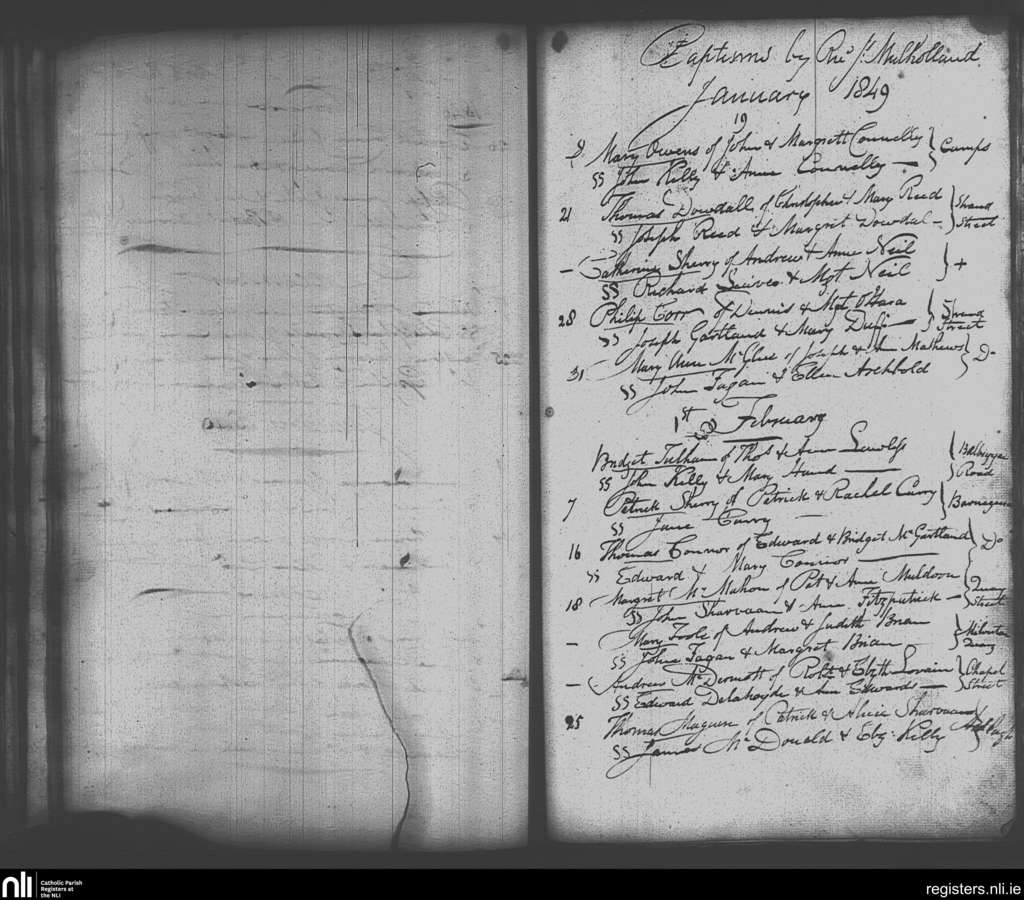 Baptisms by Rev J. Mulholland
January 1849
19
8 Mary Owens of John & Margrett Connelly } Cumps
SS John Kelly & Anne Connelly —
21 Thomas Dowdall of Christopher & Mary Reed } Strand Street
SS Joseph Reed & Margrit Dowdal –
– Catherine Sherry of Andrew & Anne Neil } +
SS Richard & Mgt Neil
28 Philip Corr of Dennis & Mgt O'Hara } Strand Street
SS Joseph Gartland & Mary Duff –
31 Mary Ann McGlue of Joseph & Ann Mathews } Do
SS John Fagan & Ellen Archbold
1st February
Bridget of Thos & Ann Lawless } Road
SS John Kelly & Mary Hand —
7 Patrick Sherry of Patrick & Rachel Curry }
SS Jane Curry
16 Thomas Connor of Edward & Bridget McGartland } Do
SS Edward & Mary Connor —
18 Margret McMahon of Pat & Anne Muldoon } Quay Street
SS John & Ann Fitzpatrick –
– Mary Toole of Andrew & Judith Brian } Quay
SS John Fagan & Margret Brian
– Andrew McDermott of Robt & Elzth } Chapel Street
SS Edward Delahoyde & Ann Edwards —
25 Thomas Maguire of Patrick & Alice
SS James McDonald & Elz. Kelly
nli
Catholic Parish
Registers at
the NLI
registers.nli.ie